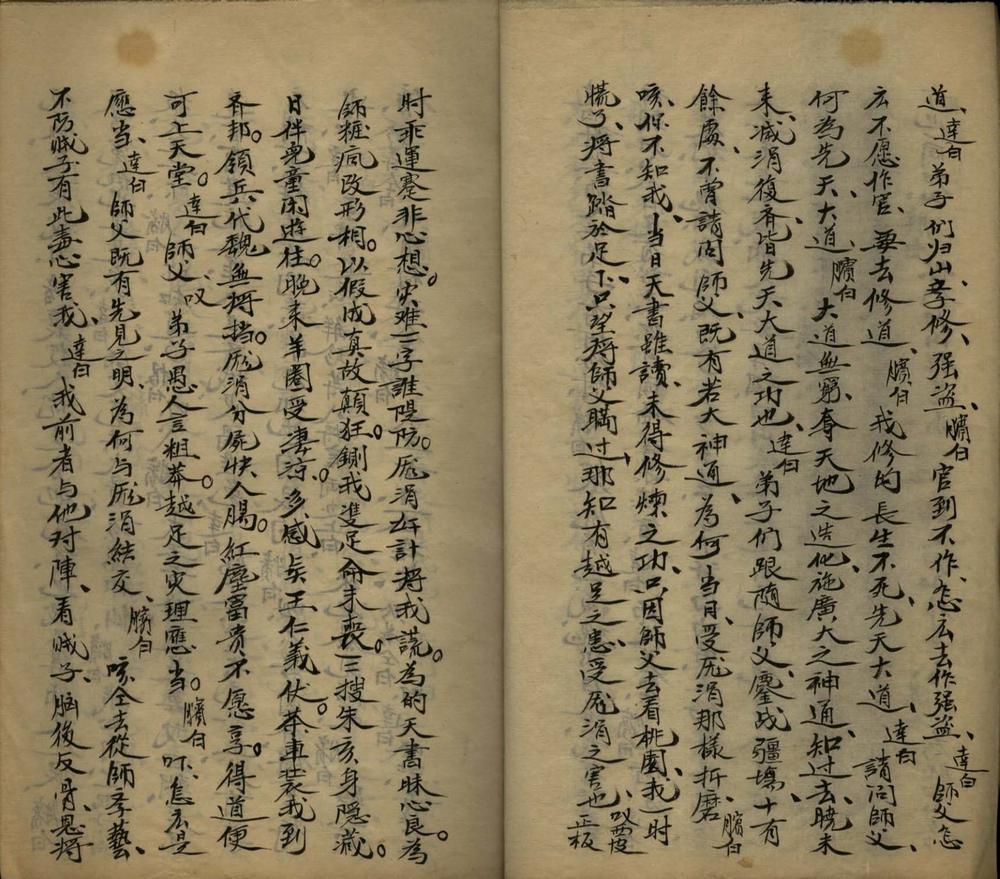 道、達白弟子們归山孝修、强盗、臏白官到不作、怎么去作强盗、達白師父怎
么不愿作官、要去修道、臏白我修的長生不死先天大道、達白請问師父、
何為先天大道、臏白大道無窮、奪天地之造化、施廣大之神通、知过去曉未
来、减涓復齐皆先天大道之功也、達白弟子們跟随師父、鏖战疆塲、十有
餘處、不曾請问師父、既有若大神通、為何当日受厐涓那樣折磨、臏白
咳、你不知我、当日天書雖讀、未得修煉之功、只因師父去看桃園、我一时
慌了、将書踏於足下、只望将師父瞞过、那知有越足之患、受厐涓之害也、叹西皮正板
时乖運蹇非心想。灾难二字誰隄防。厐涓奸計将我謊。為的天書昧心良。為
師粧疯改形相。以假成真故顛狂。鍘我雙足命未喪。三搜朱亥身隱藏。
日伴児童闲遊往。晚来羊圈受凄涼。多感吴王仁義伏。茶車装我到
齐邦。領兵代魏無将挡。厐涓分屍快人腸。紅塵富貴不愿享。得道便
可上天堂。達白師父、叹弟子愚人言粗莽。越足之灾理應当。臏白吓、怎么是
應当、達白師父既有先見之明、為何与厐涓結交、臏白咳、仝去從師孝藝、
不防贼子有此毒心害我、達白我前者与他对陣、看贼子、腦後反骨、恩将